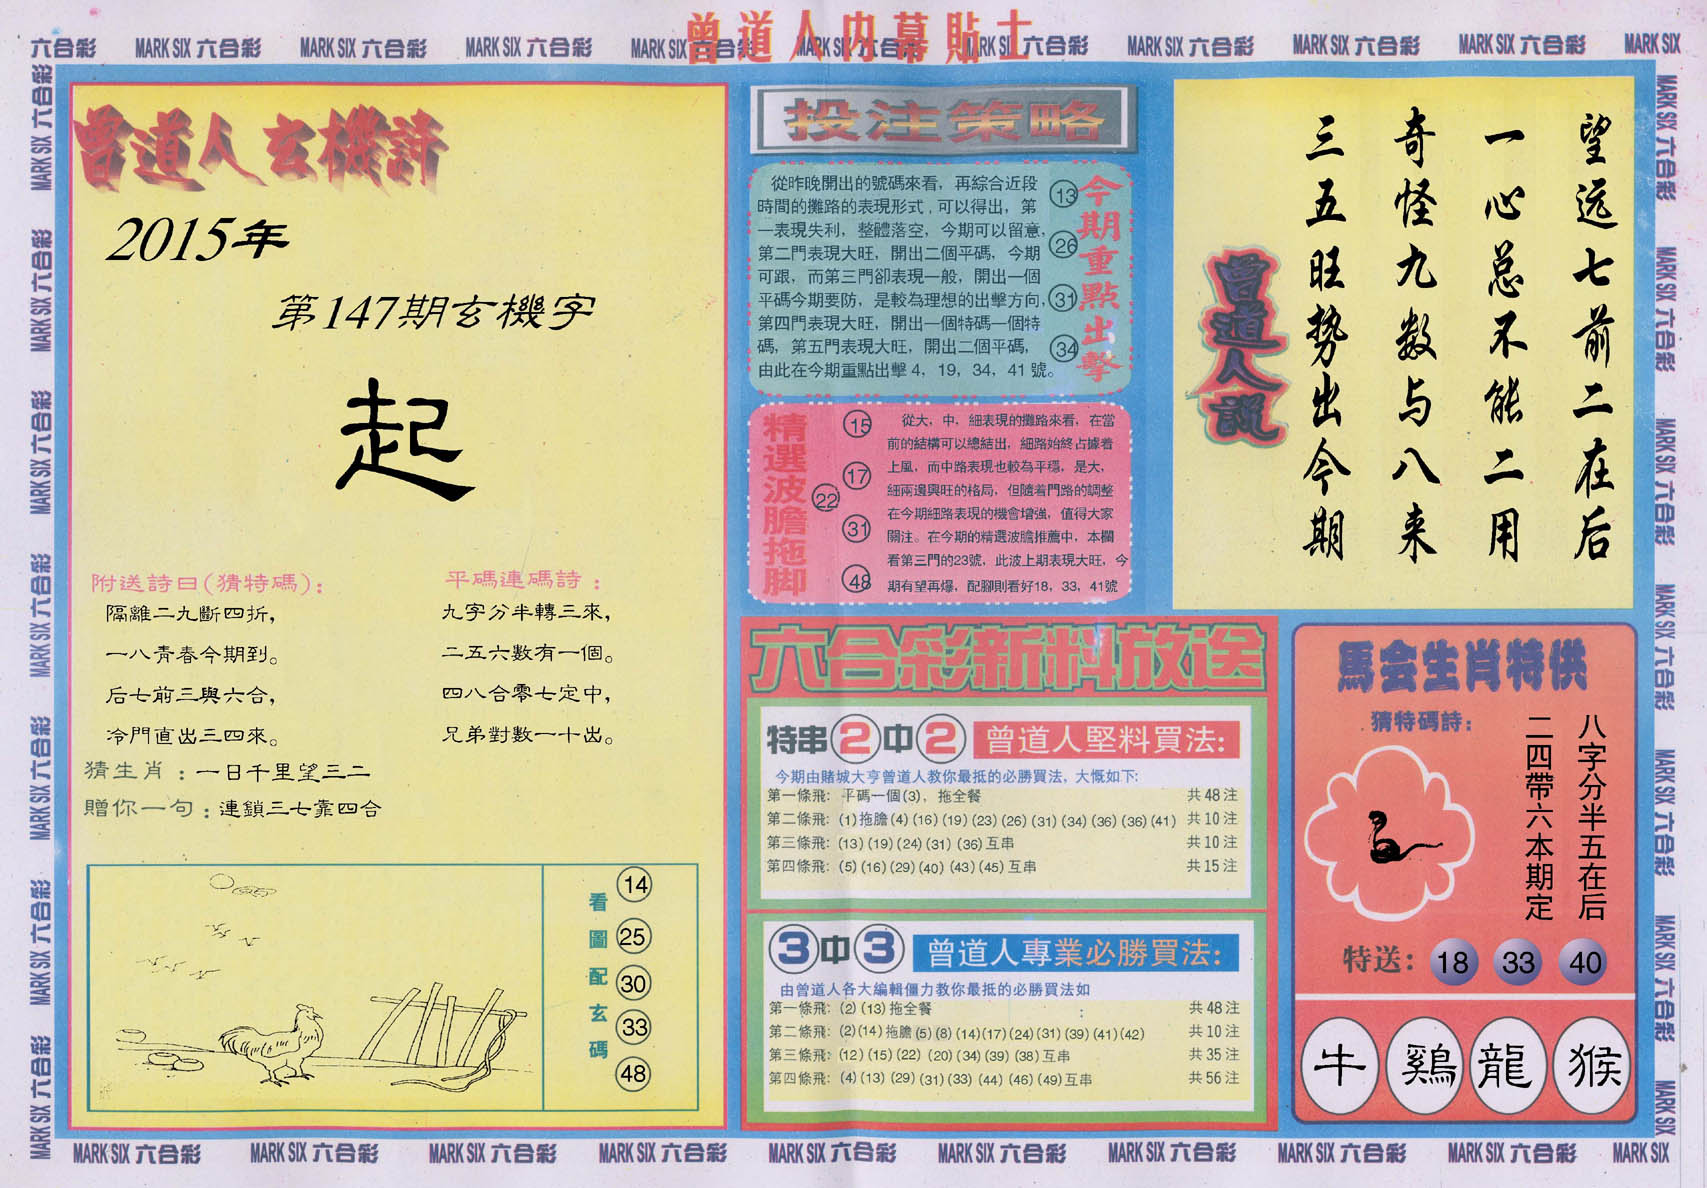 曾道人内幕貼士
六合彩 MARK SIX 六合彩 MARK SIX 六合彩 MARK SIX 六合彩 MARK SIX 六合彩 MARK SIX 六合彩 MARK SIX 六合彩 MARK SIX 六合彩 MARK SIX 六合彩 MARK SIX 六合彩 MARK SIX
曾道人玄機詩
2015年
第147期玄機字
起
附送詩曰(猜特碼):
隔離二九斷四折,
一八青春今期到。
后七前三與六合,
冷門直出三四來。
平碼連碼詩:
九字分半轉三來,
二五六數有一個。
四八合零七定中,
兄弟對數一十出。
猜生肖:一日千里望三二
贈你一句:連鎖三七靠四合
看圖配玄碼
14
25
30
33
48
投注策略
從昨晚開出的號碼來看，再綜合近段
時間的攤路的表現形式，可以得出，第
一表現失利，整體落空，今期可以留意，
第二門表現大旺，開出二個平碼，今期
可跟，而第三門卻表現一般，開出一個
平碼今期要防，是較為理想的出擊方向，
第四門表現大旺，開出一個特碼一個特
碼，第五門表現大旺，開出二個平碼，
由此在今期重點出擊 4，19，34，41 號。
13
26
31
34
今期重點出擊
精選波膽拖脚
15
17
22
31
48
從大，中，細表現的攤路來看，在當
前的結構可以總結出，細路始終占據着
上風，而中路表現也較為平穩，是大，
細兩邊興旺的格局，但隨着門路的調整
在今期細路表現的機會增強，值得大家
關注。在今期的精選波膽推薦中，本欄
看第三門的23號，此波上期表現大旺，今
期有望再爆，配腳則看好18，33，41號
望远七前二在后
一心总不能二用
奇怪九数与八来
三五旺势出今期
曾道人説
六合彩新料放送
特串2中2 曾道人堅料買法:
今期由賭城大亨曾道人教你最抵的必勝買法，大慨如下:
第一條飛: 平碼一個(3)，拖全餐 共48注
第二條飛: (1)拖膽(4)(16)(19)(23)(26)(31)(34)(36)(36)(41) 共10注
第三條飛: (13)(19)(24)(31)(36)互串 共10注
第四條飛: (5)(16)(29)(40)(43)(45)互串 共15注
3中3 曾道人專業必勝買法:
由曾道人各大編輯僵力教你最抵的必勝買法如
第一條飛: (2)(13)拖全餐 共48注
第二條飛: (2)(14)拖膽(5)(8)(14)(17)(24)(31)(39)(41)(42) 共10注
第三條飛: (12)(15)(22)(20)(34)(39)(38)互串 共35注
第四條飛: (4)(13)(29)(31)(33)(44)(46)(49)互串 共56注
馬会生肖特供
猜特碼詩:
八字分半五在后
二四帶六本期定
特送: 18 33 40
牛 鷄 龍 猴
MARK SIX 六合彩 MARK SIX 六合彩 MARK SIX 六合彩 MARK SIX 六合彩 MARK SIX 六合彩 MARK SIX 六合彩 MARK SIX 六合彩 MARK SIX 六合彩 MARK SIX 六合彩 MARK SIX